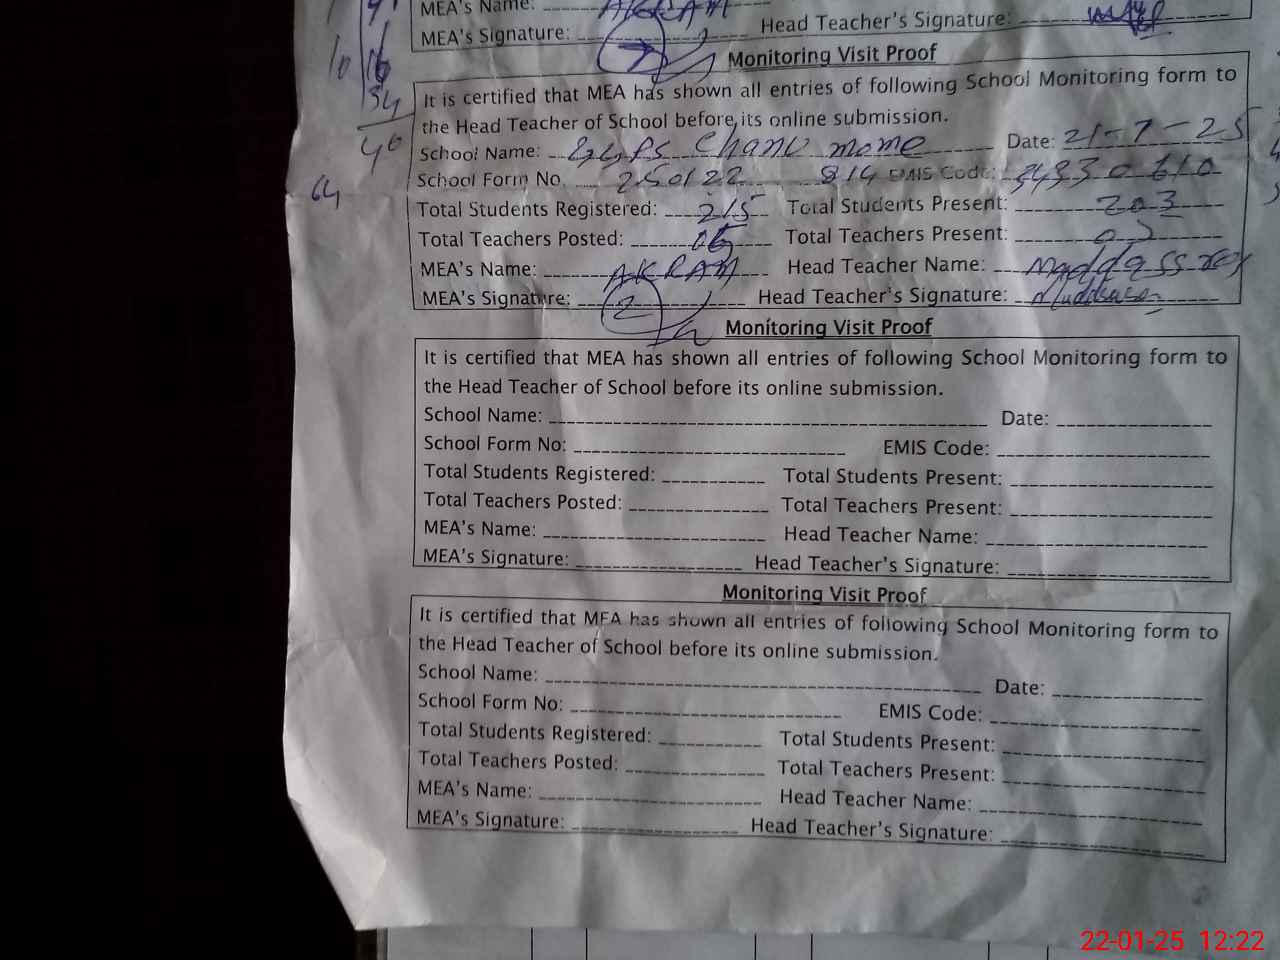 MEA's Name: AKRAM
MEA's Signature: Head Teacher's Signature:
Monitoring Visit Proof
It is certified that MEA has shown all entries of following School Monitoring form to
the Head Teacher of School before its online submission.
School Name: GGPS Chanu mome Date: 21-1-25
School Form No. 250122 814 EMIS Code: 34330610
Total Students Registered: 215 Total Students Present: 203
Total Teachers Posted: Total Teachers Present:
MEA's Name: AKRAM Head Teacher Name:
MEA's Signature: Head Teacher's Signature:
Monitoring Visit Proof
It is certified that MEA has shown all entries of following School Monitoring form to
the Head Teacher of School before its online submission.
School Name: Date:
School Form No: EMIS Code:
Total Students Registered: Total Students Present:
Total Teachers Posted: Total Teachers Present:
MEA's Name: Head Teacher Name:
MEA's Signature: Head Teacher's Signature:
Monitoring Visit Proof
It is certified that MEA has shown all entries of following School Monitoring form to
the Head Teacher of School before its online submission.
School Name: Date:
School Form No: EMIS Code:
Total Students Registered: Total Students Present:
Total Teachers Posted: Total Teachers Present:
MEA's Name: Head Teacher Name:
MEA's Signature: Head Teacher's Signature:
22-01-25 12:22